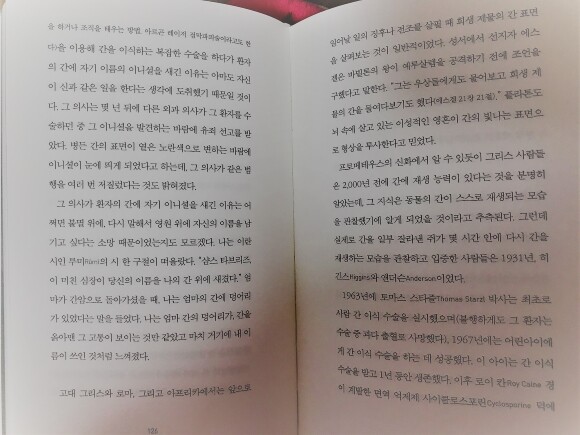 을 하거나 조직을 태우는 방법. 아르곤 레이저 절약파괴술이라고도 한
다)을 이용해 간을 이식하는 복잡한 수술을 하다가 환자
의 간에 자기 이름의 이니셜을 새긴 이유는 아마도 자신
이 신과 같은 일을 한다는 생각에 도취했기 때문일 것이
다. 그 의사는 몇 년 뒤에 다른 외과 의사가 그 환자를 수
술하던 중 그 이니셜을 발견하는 바람에 유죄 선고를 받
았다. 병든 간의 표면이 옅은 노란색으로 변하는 바람에
이니셜이 눈에 띄게 되었다고 하는데, 그 의사가 같은 범
행을 여러 번 저질렀다는 것도 밝혀졌다.
그 의사가 환자의 간에 자기 이니셜을 새긴 이유는 어
쩌면 불멸 위에, 다시 말해서 영원 위에 자신의 이름을 남
기고 싶다는 소망 때문이었는지도 모르겠다. 나는 이란
시인 루미Rumi의 시 한 구절이 떠올랐다. “샴스 타브리즈,
이 미친 심장이 당신의 이름을 나의 간 위에 새겼다.” 엄
마가 간암으로 돌아가셨을 때, 나는 엄마의 간에 덩어리
가 있었다는 말을 들었다. 나는 엄마 간의 덩어리가, 간을
옭아맨 그 고통이 보이는 것만 같았고 마치 거기에 내 이
름이 쓰인 것처럼 느껴졌다.
고대 그리스와 로마, 그리고 아프리카에서는 앞으로
126
일어날 일의 징후나 건조를 살필 때 희생 제물의 간 표면
을 살펴보는 것이 일반적이었다. 성서에서 선지자 에스
겔은 바빌론의 왕이 예루살렘을 공격하기 전에 조언을
구했다고 말한다. “그는 우상들에게도 물어보고 희생 제
물의 간을 들여다보기도 했다(에스겔 21장 21절).” 플라톤도
뇌 속에 살고 있는 이성적인 영혼이 간의 빛나는 표면으
로 형상을 투사한다고 믿었다.
프로메테우스의 신화에서 알 수 있듯이 그리스 사람들
은 2,000년 전에 간에 재생 능력이 있다는 것을 분명히
알았는데, 그 지식은 동물의 간이 스스로 재생되는 모습
을 관찰했기에 알게 되었을 것이라고 추측된다. 그런데
실제로 간을 일부 잘라낸 쥐가 몇 시간 안에 다시 간을
재생하는 모습을 관찰하고 입증한 사람들은 1931년, 히
긴스Higgins와 앤더슨Anderson이었다.
1963년에 토마스 스타즐Thomas Starzl 박사는 최초로
사람 간 이식 수술을 실시했으며(불행하게도 그 환자는
수술 중 과다 출혈로 사망했다), 1967년에는 어린아이에
게 간 이식 수술을 하는 데 성공했다. 이 아이는 간 이식
수술을 받고 1년 동안 생존했다. 이후 로이 칸Roy Calne 경
이 개발한 면역 억제제 사이클로스포린Cyclosporine 덕에